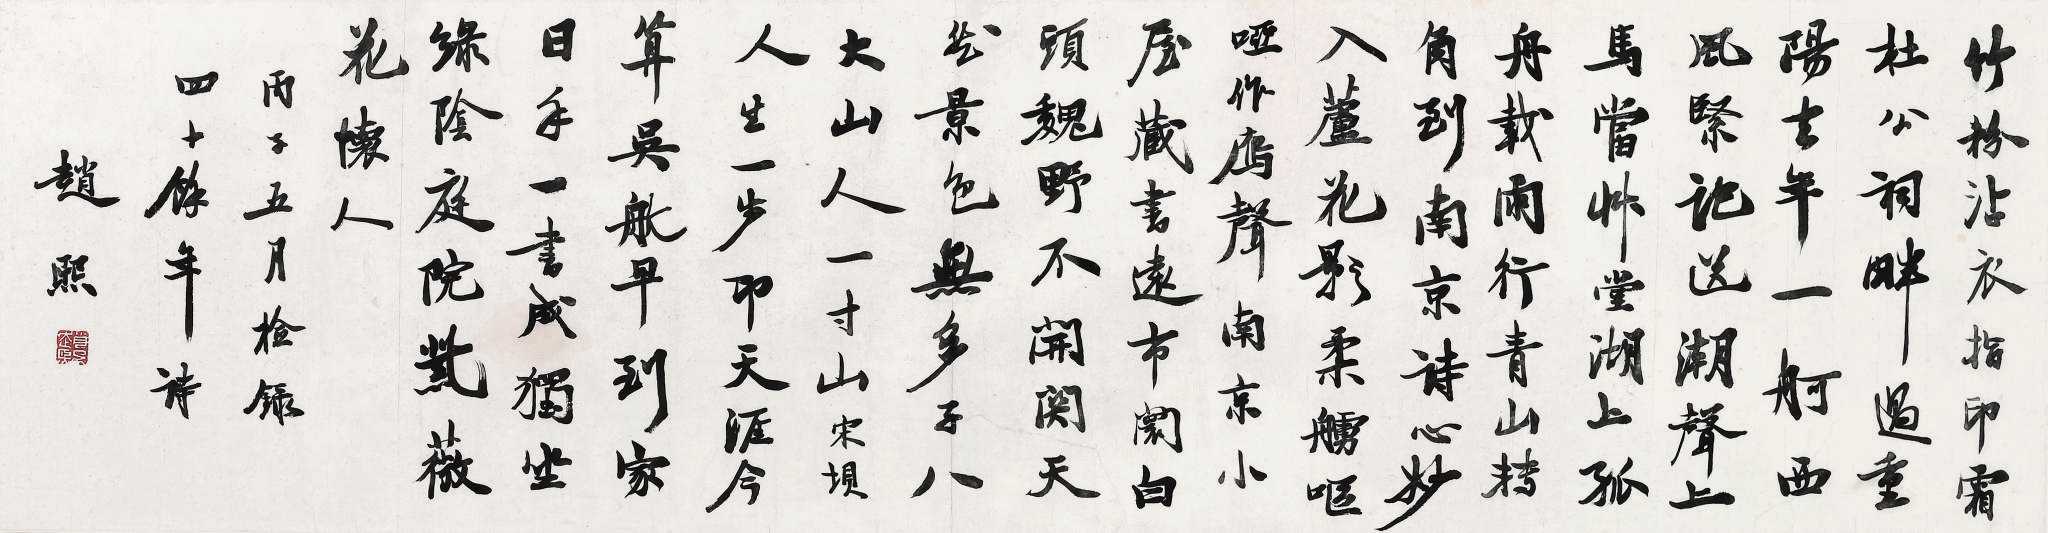 竹粉沾衣指印霜
杜公祠畔過重
陽去年一舸西
風緊記送潮聲上
馬當艸堂湖上孤
舟載雨行青山轉
角到南京詩心妙
入蘆花影柔艣嘔
啞作雁聲南京小
屋藏書遠市闤白
頭魏野不開關天
然景色無多子八
大山人一寸山宋埧
人生一步即天涯今
算吳航早到家
日手一書成獨坐
綠陰庭院紫薇
花懷人
丙子五月檢錄
四十餘年詩
趙熙